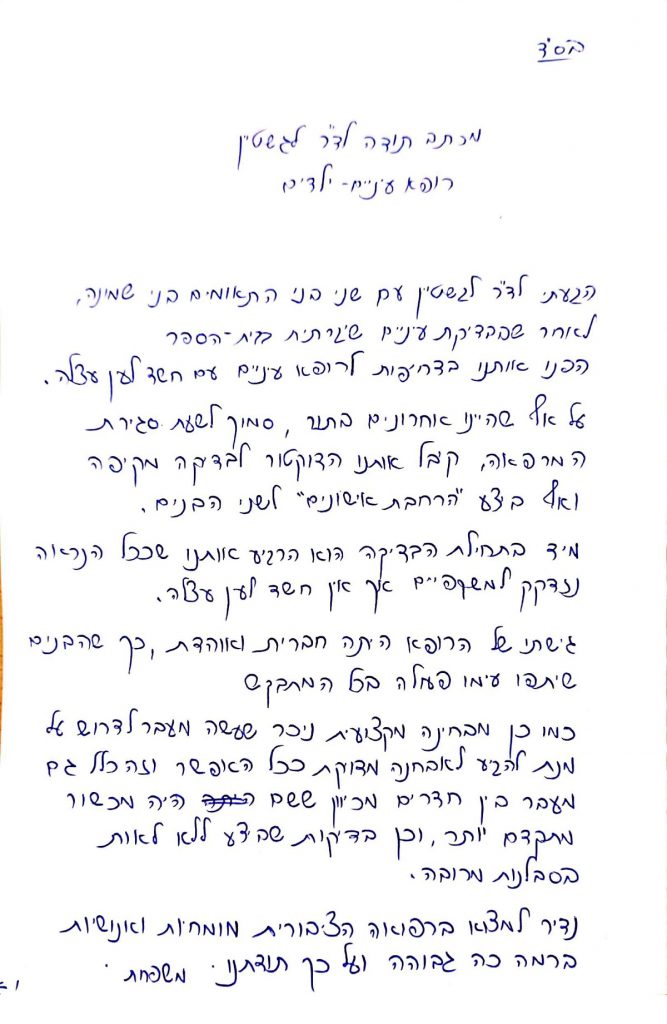 בס"ד
מכתב תודה לד"ר לגשטיין
רופא עיניים - ילדים
הגעתי לד"ר לגשטיין עם שני בני התאומים בני שמינה,
לאחר שבבדיקת עיניים שיגרתית בבית-הספר
הפנו אותנו בדחיפות לרופא עיניים עם חשד לעין עצלה.
על אף שהיינו אחרונים בתור, סמוך לשעת סגירת
המרפאה, קיבל אותנו הדוקטור לבדיקה מקיפה
ואף ביצע "הרחבת אישונים" לשני הבנים.
מיד בתחילת הבדיקה הוא הרגיע אותנו שככל הנראה
נזדקק למשקפיים אך אין חשד לעין עצלה.
גישתו של הרופא היתה חברית ואוהדת, כך שהבנים
שיתפו עימו פעולה בכל המתבקש
כמו כן מבחינה מקצועית ניכר שעשה מעבר לדרוש על
מנת להגיע לאבחנה מדויקת ככל האפשר וזה כלל גם
מעבר בין חדרים מכיוון ששם היה מכשור
מתקדם יותר, וכן בדיקות שביצע ללא לאות
בסבלנות מרובה.
נדיר למצוא ברפואה הציבורית מומחיות ואנושיות
ברמה כה גבוהה ועל כך תודתנו. משפחת